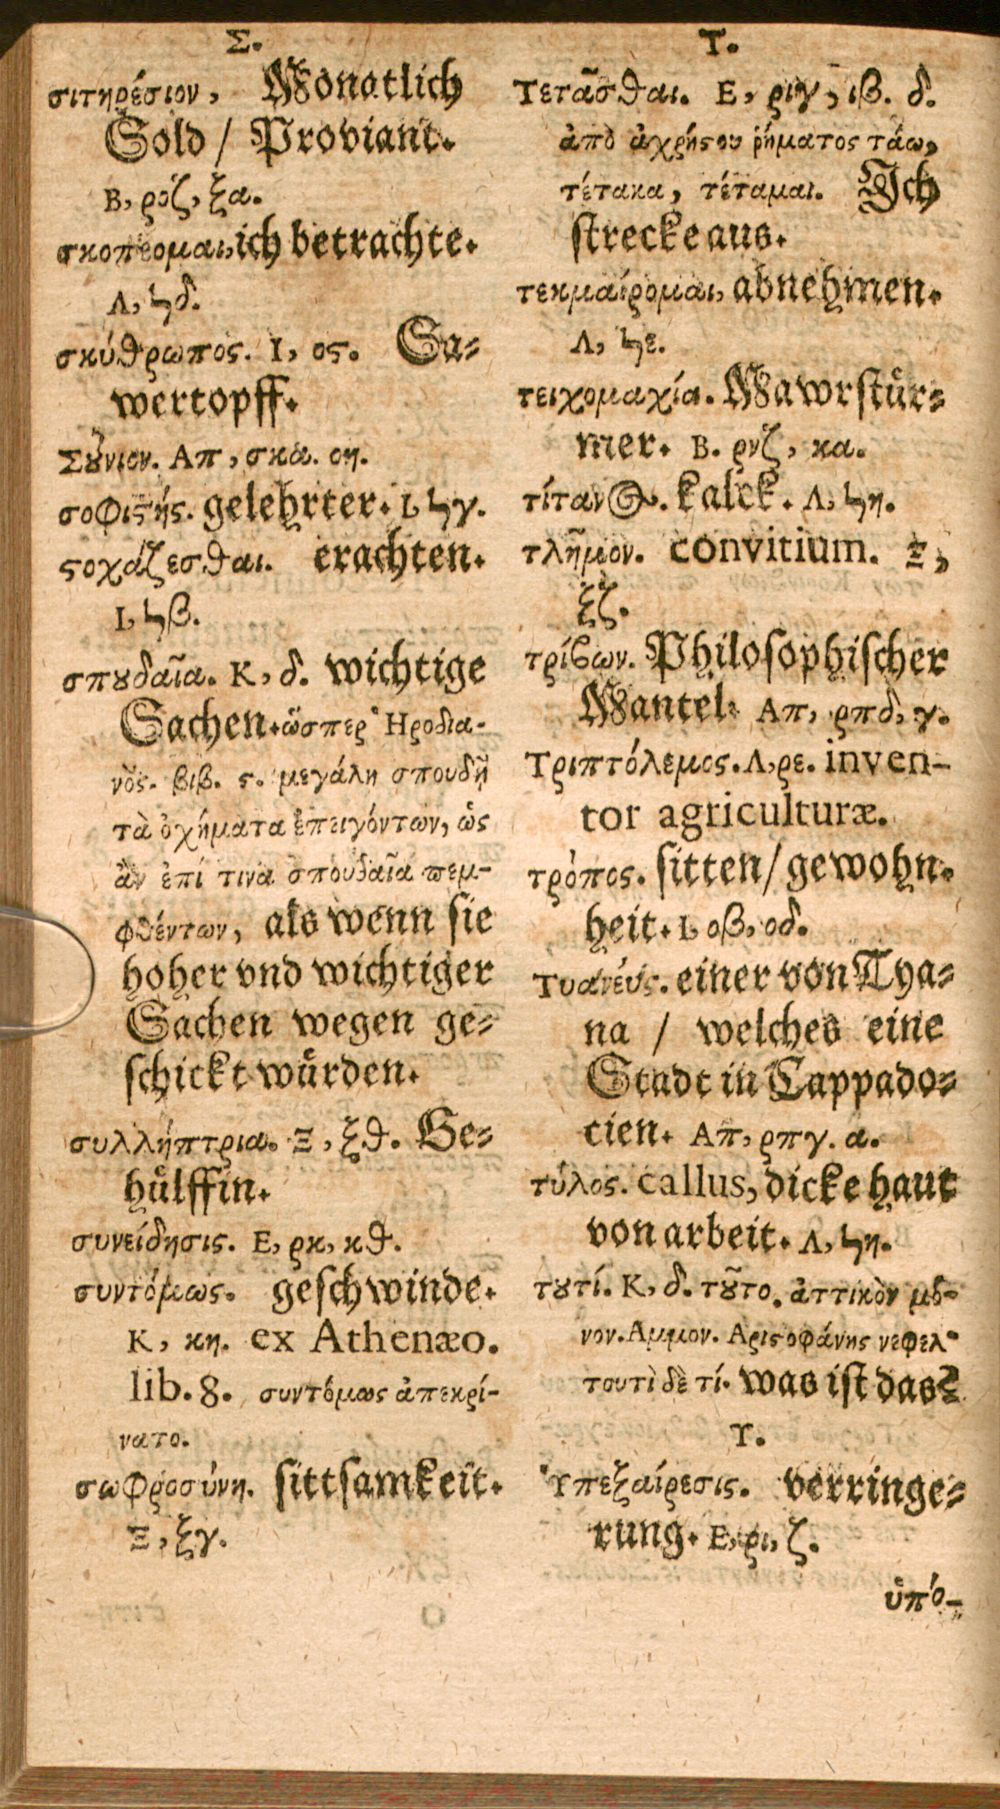 Σ.
σιτηρέσιον, Monatlich
Sold / Proviant.
Β, ροζ, ξα.
σκοπέομαι, ich betrachte.
Λ, ϟδ.
σκύθρωπος. Ι, ος. Sa-
wertopff.
Σȣ͂νιον. Απ, σκα. οη.
σοφιϛής. gelehrter. Ι, ϟγ.
ϛοχάζεσθαι. erachten.
Ι, ϟβ.
σπȣδαῖα. Κ, δ. wichtige
Sachen. ὥσπερ Ἡροδια-
νὸς. βιβ. ϛ. μεγάλη σπουδῇ
τὰ ὀχήματα ἐπειγόντων, ὡς
ἂν ἐπί τινα σπουδαῖα πεμ-
φθέντων, als wenn sie
hoher vnd wichtiger
Sachen wegen ge-
schickt wuͤrden.
συλλήπτρια. Ξ, ξθ. Ge-
huͤlffin.
συνείδησις. Ε, ρκ, κθ.
συντόμως. geschwinde.
Κ, κη. ex Athenæo.
lib. 8. συντόμως ἀπεκρί-
νατο.
σωφροσύνη. sittsamkeit.
Ξ, ξγ.
Τ.
Τετᾶσθαι. Ε, ριγ, ιβ. δ.
ἀπὸ ἀχρήϛου ῥήματος τάω,
τέτακα, τέταμαι. Ich
strecke aus.
τεκμαίρομαι, abnehmen.
Λ, ϟε.
τειχομαχία. Mawrstuͤr-
mer. Β. ρνζ, κα.
τίτανος. kalck. Λ, ϟη.
τλῆμον. convitium. Ξ,
ξζ.
τρίβων. Philosophischer
Mantel. Απ, ρπδ, γ.
Τριπτόλεμος. Λ, ρε. inven-
tor agriculturæ.
τρόπος. sitten / gewohn-
heit. Ι, οβ, οδ.
Τυανεύς. einer von Tya-
na / welches eine
Stadt in Cappado-
cien. Απ, ρπγ. α.
τύλος. callus, dicke haut
von arbeit. Λ, ϟη.
τȣτί. Κ, δ. τȣ͂το. ἀττικὸν μό-
νον. Αμμον. Αριϛοφάνης νεφελ.
τουτὶ δὲ τί. was ist das?
Υ.
Ὑπεξαίρεσις. verringe-
rung. Ε, ρι, ζ.
ὑπό-